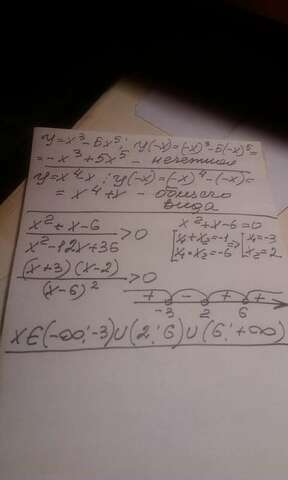 y=x³-5x⁵; y(-x)=(-x)³-5(-x)⁵=
=-x³+5x⁵ - нечетная
y=x⁴x; y(-x)=(-x)⁴-(-x)=
= x⁴+x - общего
вида
x²+x-6 / x²-12x+36 >0
x²+x-6=0
[x₁+x₂=-1 ⇒ [x₁=-3
[x₁·x₂=-6 [x₂=2
(x+3)(x-2) / (x-6)² >0
+ - + +
-3 2 6
x∈(-∞;-3)∪(2;6)∪(6;+∞)